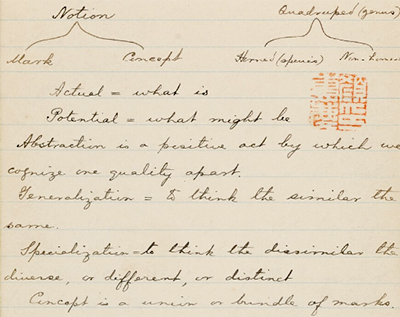 Notion Quadruped (genus)
Mark Concept Horned (species) Non-horned
Actual = what is
Potential = what might be
Abstraction is a positive act by which we
cognize one quality apart.
Generalization = to think the similar the
same.
Specialization = to think the dissimilar the
diverse, or different, or distinct
Concept is a union or bundle of marks.